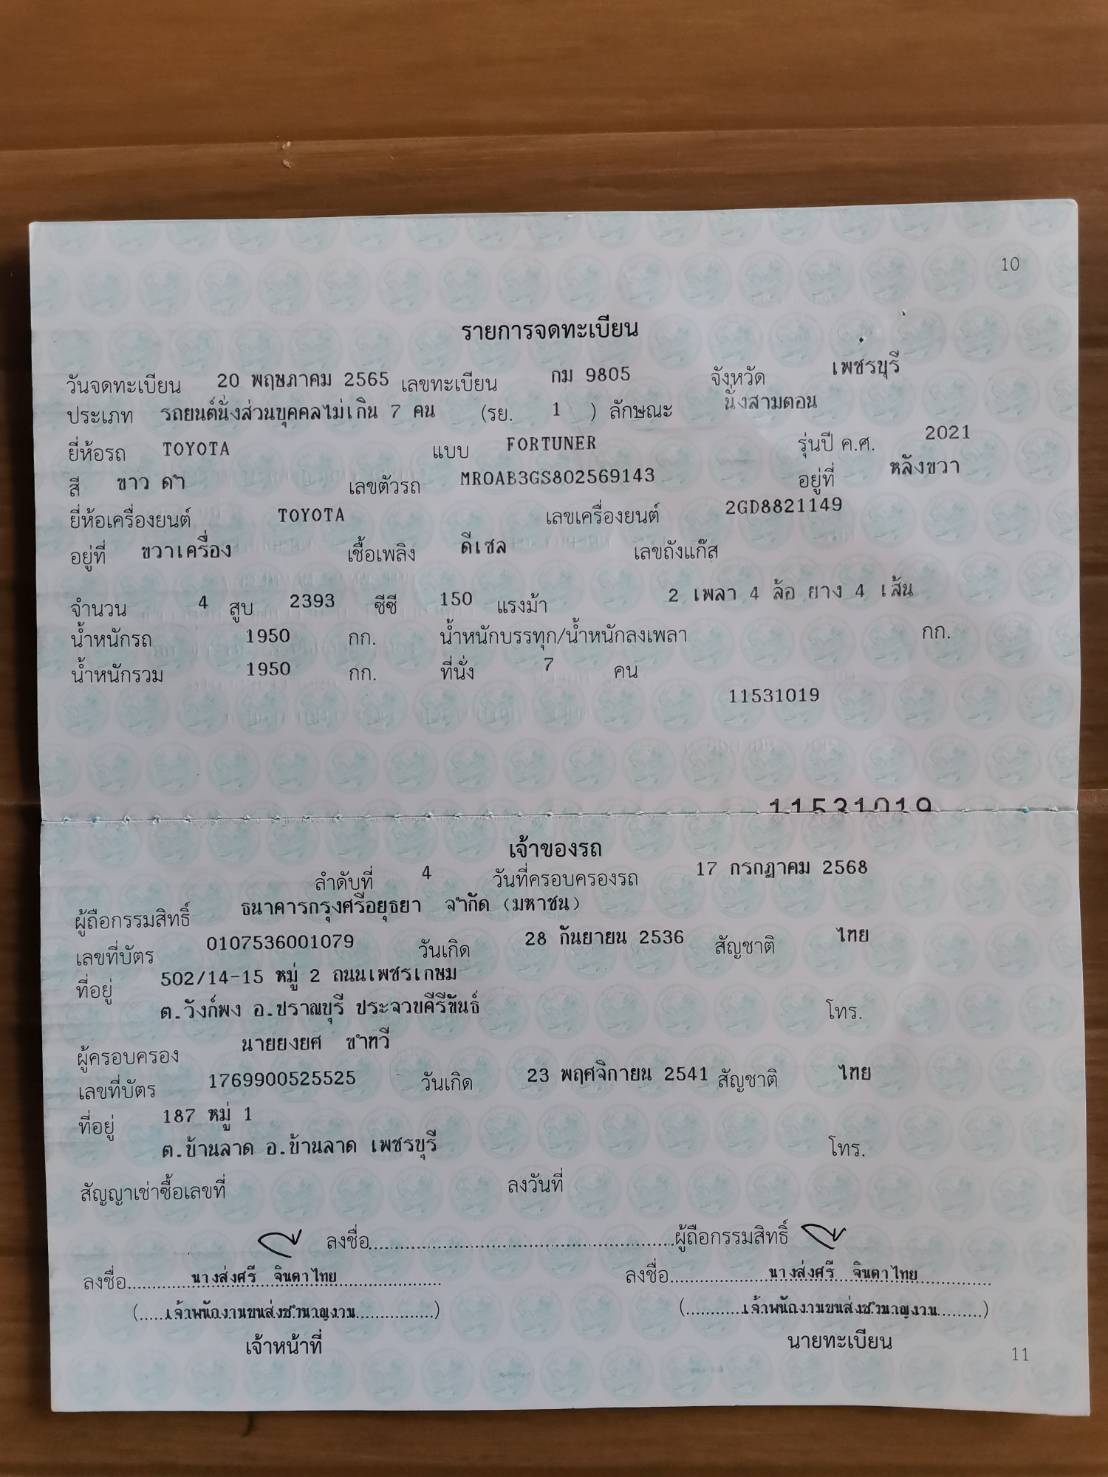 10
รายการจดทะเบียน
วันจดทะเบียน 20 พฤษภาคม 2565 เลขทะเบียน กม 9805 จังหวัด เพชรบุรี
ประเภท รถยนต์นั่งส่วนบุคคลไม่เกิน 7 คน (รย. 1 ) ลักษณะ นั่งสามตอน
ยี่ห้อรถ TOYOTA แบบ FORTUNER รุ่นปี ค.ศ. 2021
สี ขาว ดำ เลขตัวรถ MR0AB3GS802569143 อยู่ที่ หลังขวา
ยี่ห้อเครื่องยนต์ TOYOTA เลขเครื่องยนต์ 2GD8821149
อยู่ที่ ขวาเครื่อง เชื้อเพลิง ดีเซล เลขถังแก๊ส
จำนวน 4 สูบ 2393 ซีซี 150 แรงม้า 2 เพลา 4 ล้อ ยาง 4 เส้น
น้ำหนักรถ 1950 กก. น้ำหนักบรรทุก/น้ำหนักลงเพลา กก.
น้ำหนักรวม 1950 กก. ที่นั่ง 7 คน
11531019
11531019
เจ้าของรถ
ลำดับที่ 4 วันที่ครอบครองรถ 17 กรกฎาคม 2568
ผู้ถือกรรมสิทธิ์ ธนาคารกรุงศรีอยุธยา จำกัด (มหาชน)
เลขที่บัตร 0107536001079 วันเกิด 28 กันยายน 2536 สัญชาติ ไทย
ที่อยู่ 502/14-15 หมู่ 2 ถนนเพชรเกษม
ต.วังก์พง อ.ปราณบุรี ประจวบคีรีขันธ์ โทร.
ผู้ครอบครอง นายยงยศ ขำทวี
เลขที่บัตร 1769900525525 วันเกิด 23 พฤศจิกายน 2541 สัญชาติ ไทย
ที่อยู่ 187 หมู่ 1
ต.บ้านลาด อ.บ้านลาด เพชรบุรี โทร.
สัญญาเช่าซื้อเลขที่ ลงวันที่
ลงชื่อ..........ผู้ถือกรรมสิทธิ์
ลงชื่อ.....นางส่งศรี จินดาไทย..... ลงชื่อ.....นางส่งศรี จินดาไทย.....
(.....เจ้าพนักงานขนส่งชำนาญงาน.....) (.....เจ้าพนักงานขนส่งชำนาญงาน.....)
เจ้าหน้าที่ นายทะเบียน
11